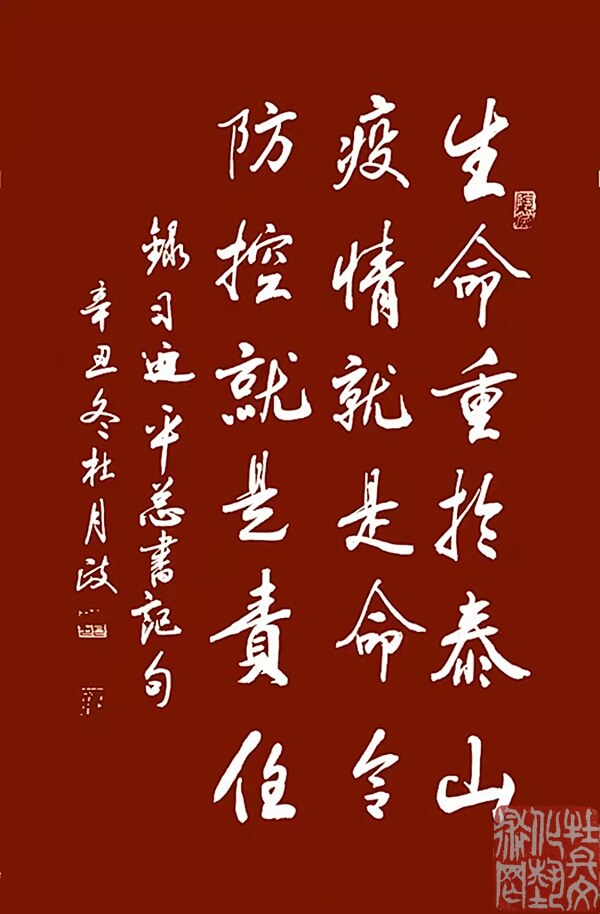 生命重於泰山
疫情就是命令
防控就是責任
錄习近平总書記句
辛丑冬杜月政